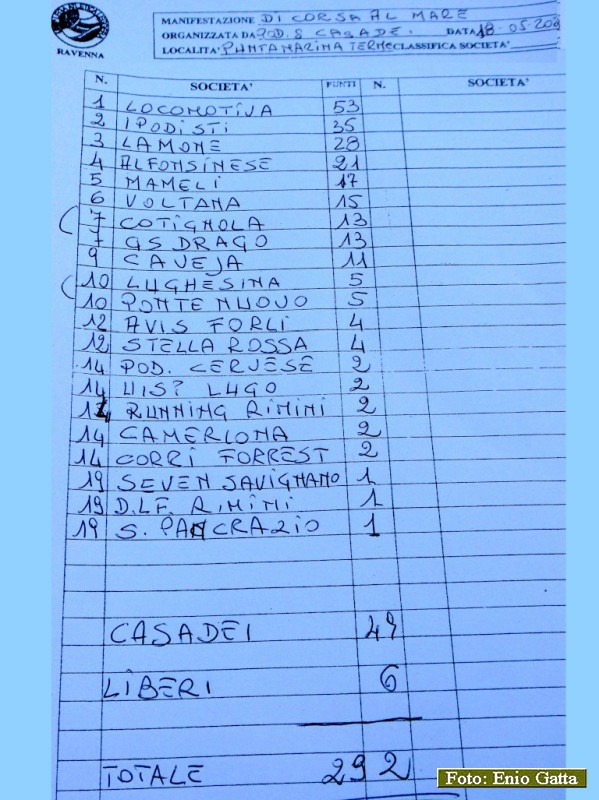 RAVENNA
MANIFESTAZIONE DI CORSA AL MARE
ORGANIZZATA DA POD. S CASADEI. DATA 18-05-200
LOCALITA' PUNTAMARINA TERME CLASSIFICA SOCIETA'
N. SOCIETA' PUNTI N. SOCIETA'
1 LOCOMOTIVA 53
2 IPODISTI 35
3 LAMONE 28
4 ALFONSINESE 21
5 MAMELI 17
6 VOLTANA 15
7 COTIGNOLA 13
7 GS DRAGO 13
9 CAVEJA 11
10 LUGHESINA 5
10 PONTE NUOVO 5
12 AVIS FORLI 4
12 STELLA ROSSA 4
14 POD. CERVESE 2
14 UISP LUGO 2
14 RUNNING RIMINI 2
14 CAMERLONA 2
14 CORRI FORREST 2
19 SEVEN SAVIGNANO 1
19 D.L.F. RIMINI 1
19 S. PANCRAZIO 1
CASADEI 49
LIBERI 6
TOTALE 292
Foto: Enio Gatta